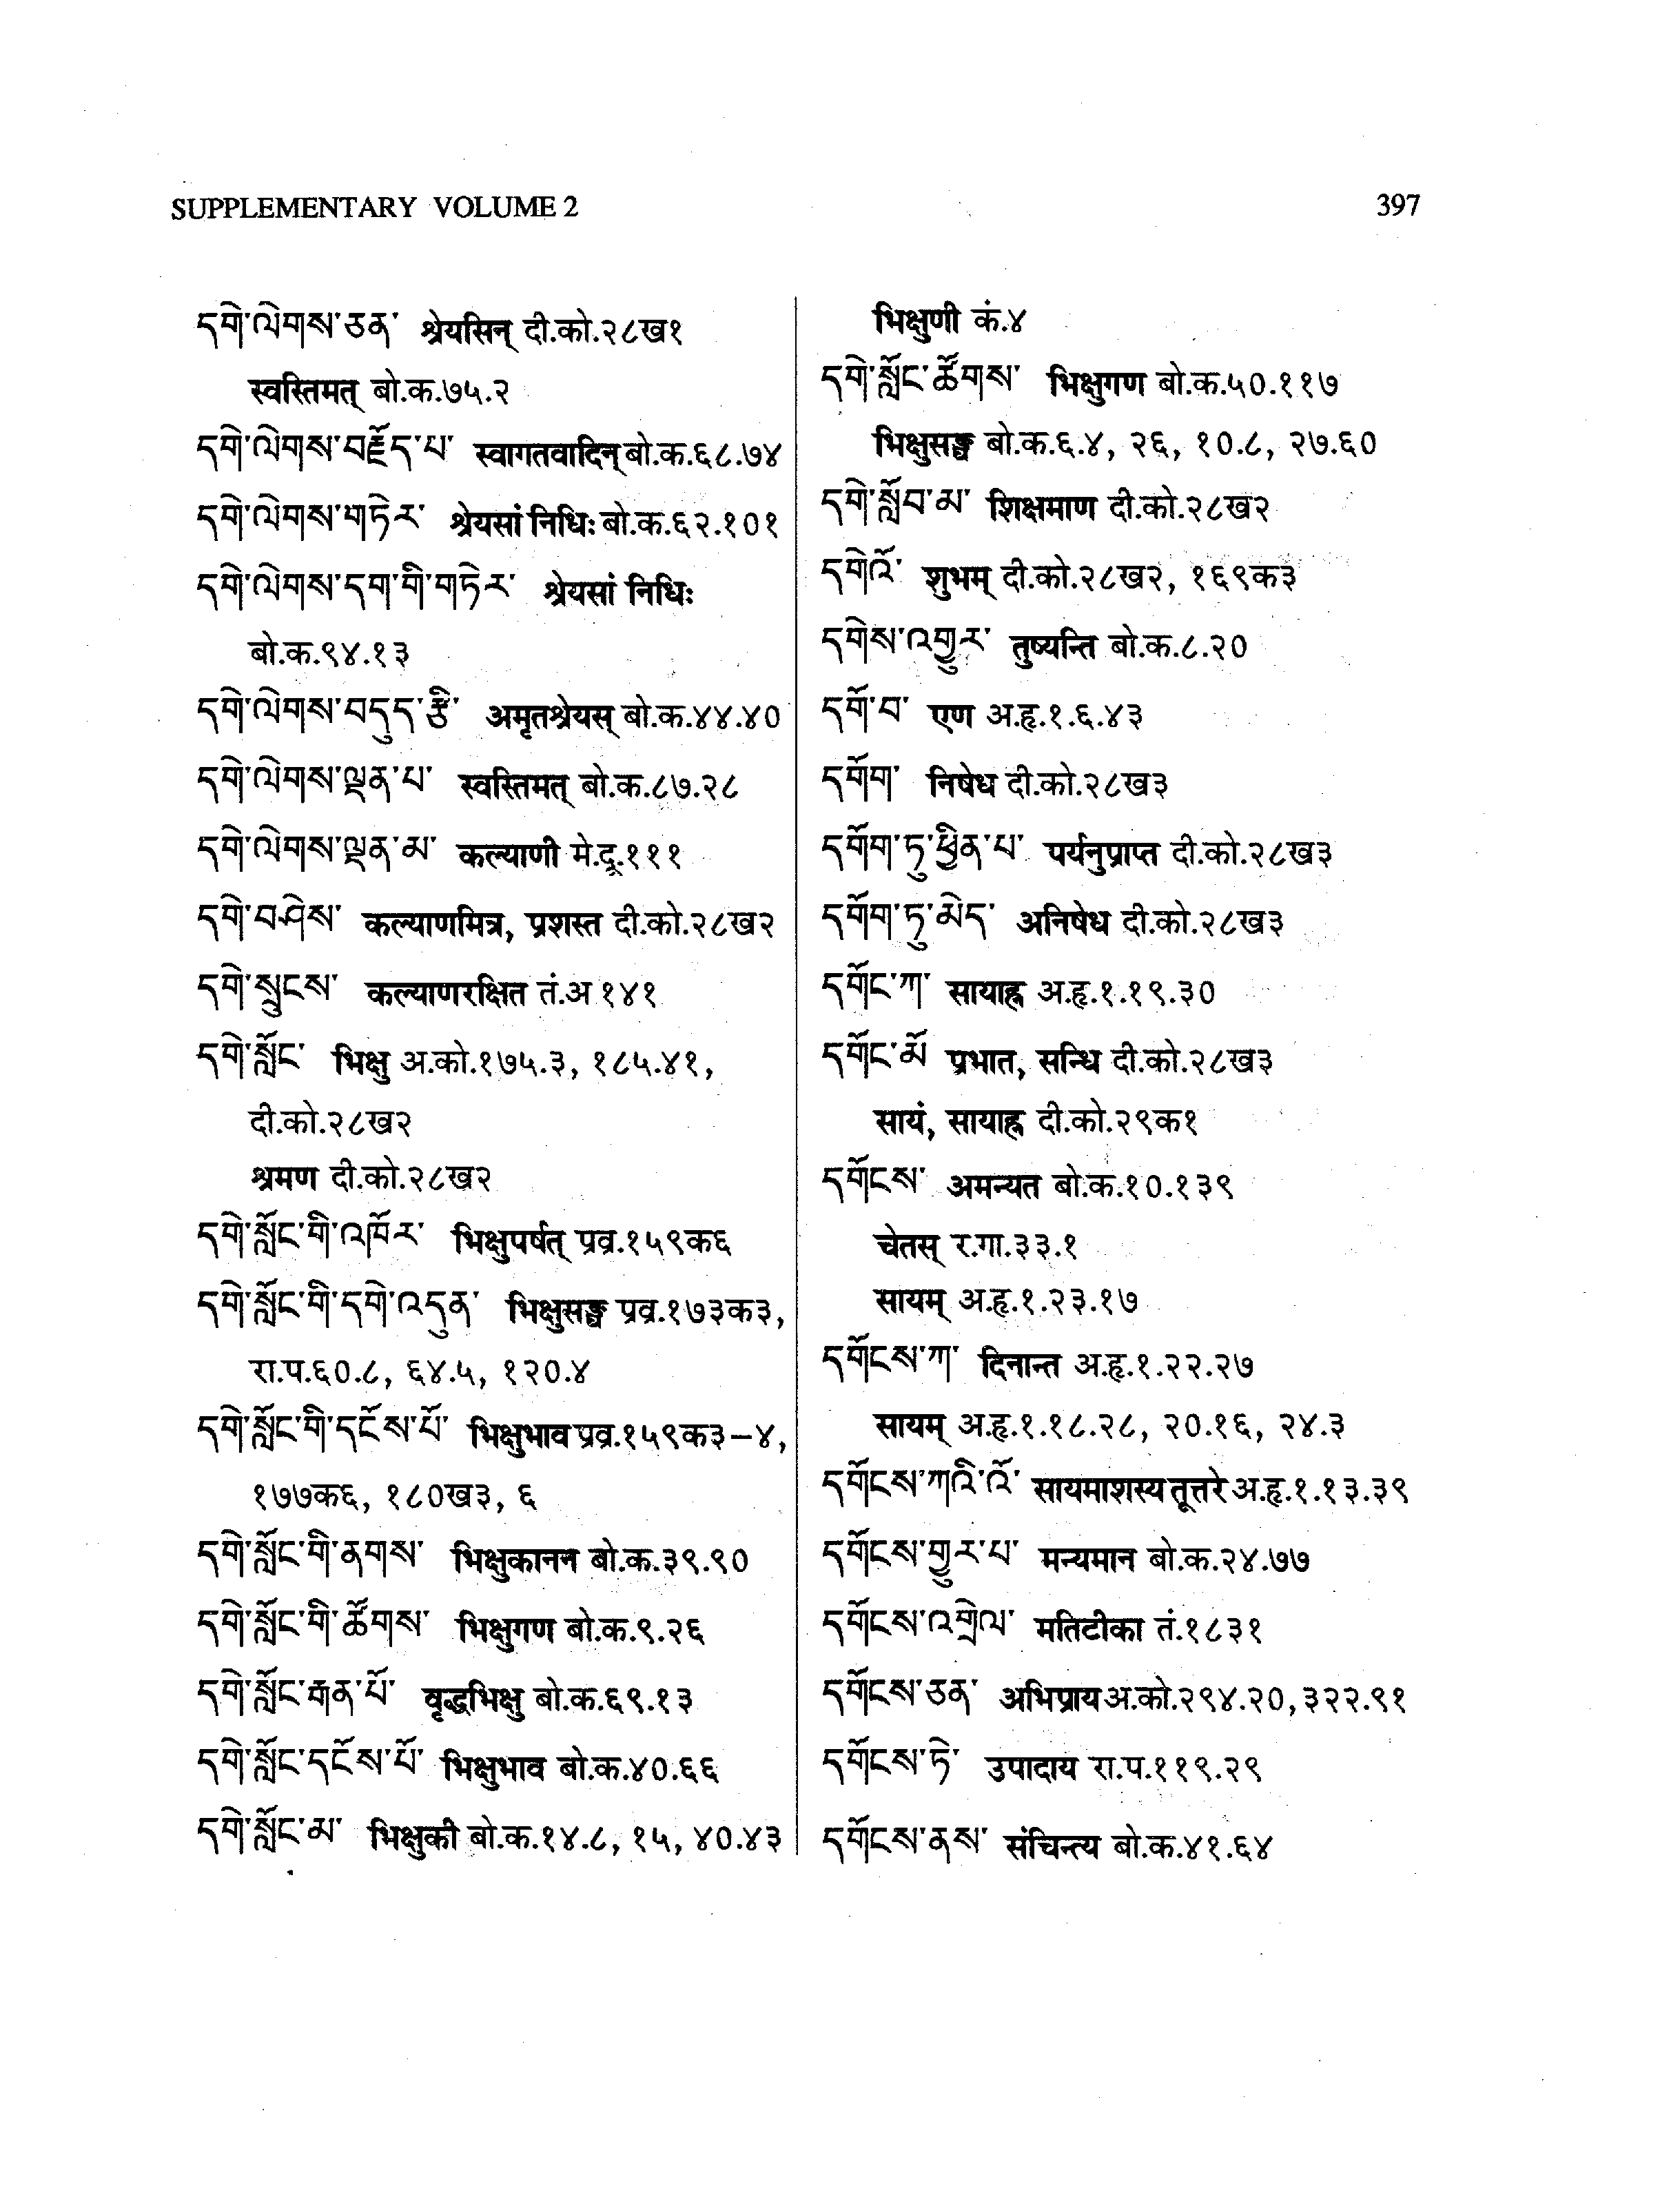 SUPPLEMENTARY VOLUME 2 397
དགེ་ལེགས་ཅན་ श्रेयसिन् दी.को.२८ख१
स्वस्तिमत् बो.क.७५.२
དགེ་ལེགས་བརྗོད་པ་ स्वागतवादिन् बो.क.६८.७४
དགེ་ལེགས་གཏེར་ श्रेयसां निधिः बो.क.६२.१०१
དགེ་ལེགས་དག་གི་གཏེར་ श्रेयसां निधिः
बो.क.९४.१३
དགེ་ལེགས་བདུད་རྩི་ अमृतश्रेयस् बो.क.४४.४०
དགེ་ལེགས་ལྡན་པ་ स्वस्तिमत् बो.क.८७.२८
དགེ་ལེགས་ལྡན་མ་ कल्याणी मे.दू.१११
དགེ་བཤེས་ कल्याणमित्र, प्रशस्त दी.को.२८ख२
དགེ་སྲུངས་ कल्याणरक्षित तं.अ १४१
དགེ་སློང་ भिक्षु अ.को.१७५.३, १८५.४१,
दी.को.२८ख२
श्रमण दी.को.२८ख२
དགེ་སློང་གི་འཁོར་ भिक्षुपर्षत् प्रव्र.१५९क६
དགེ་སློང་གི་དགེ་འདུན་ भिक्षुसङ्घ प्रव्र.१७३क३,
रा.प.६०.८, ६४.५, १२०.४
དགེ་སློང་གི་དངོས་པོ་ भिक्षुभाव प्रव्र.१५९क३–४,
१७७क६, १८०ख३, ६
དགེ་སློང་གི་ནགས་ भिक्षुकानन बो.क.३९.९०
དགེ་སློང་གི་ཚོགས་ भिक्षुगण बो.क.९.२६
དགེ་སློང་རྒན་པོ་ वृद्धभिक्षु बो.क.६९.१३
དགེ་སློང་དངོས་པོ་ भिक्षुभाव बो.क.४०.६६
དགེ་སློང་མ་ भिक्षुकी बो.क.१४.८, १५, ४०.४३
भिक्षुणी कं.४
དགེ་སློང་ཚོགས་ भिक्षुगण बो.क.५०.११७
भिक्षुसङ्घ बो.क.६.४, २६, १०.८, २७.६०
དགེ་སློབ་མ་ शिक्षमाण दी.को.२८ख२
དགེའོ་ शुभम् दी.को.२८ख२, १६९क३
དགེས་འགྱུར་ तुष्यन्ति बो.क.८.२०
དགོ་བ་ एण अ.हृ.१.६.४३
དགོག་ निषेध दी.को.२८ख३
དགོག་ཏུ་ཕྱིན་པ་ पर्यनुप्राप्त दी.को.२८ख३
དགོག་ཏུ་མེད་ अनिषेध दी.को.२८ख३
དགོང་ཀ་ सायाह्न अ.हृ.१.१९.३०
དགོང་མོ་ प्रभात, सन्धि दी.को.२८ख३
सायं, सायाह्न दी.को.२९क१
དགོངས་ अमन्यत बो.क.१०.१३९
चेतस् र.गा.३३.१
सायम् अ.हृ.१.२३.१७
དགོངས་ཀ་ दिनान्त अ.हृ.१.२२.२७
सायम् अ.हृ.१.१८.२८, २०.१६, २४.३
དགོངས་ཀའི་འོ་ सायमाशस्य तूत्तरे अ.हृ.१.१३.३९
དགོངས་གྱུར་པ་ मन्यमान बो.क.२४.७७
དགོངས་འགྲེལ་ मतिटीका तं.१८३१
དགོངས་ཅན་ अभिप्राय अ.को.२९४.२०, ३२२.९१
དགོངས་ཏེ་ उपादाय रा.प.११९.२९
དགོངས་ནས་ संचिन्त्य बो.क.४१.६४